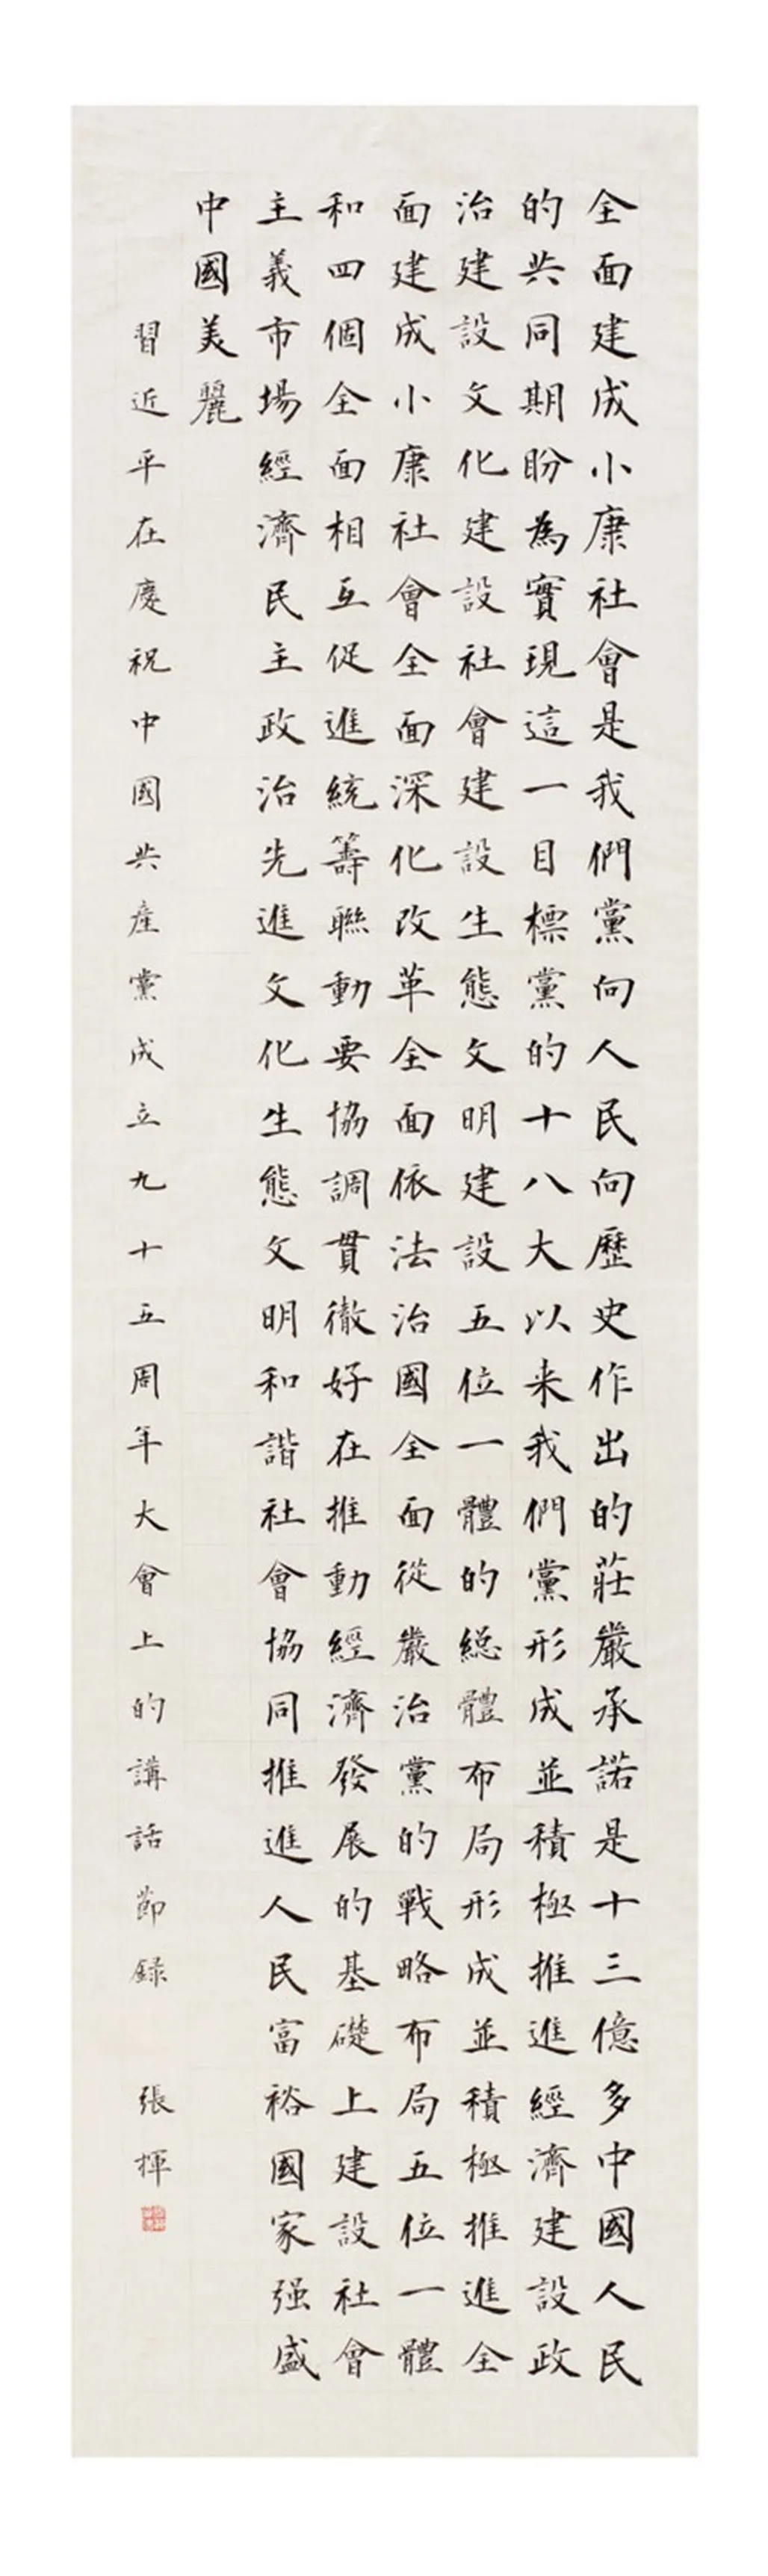 全面建成小康社會是我們黨向人民向歷史作出的莊嚴承諾是十三億多中國人民
的共同期盼為實現這一目標黨的十八大以来我們黨形成並積極推進經濟建設政
治建設文化建設社會建設生態文明建設五位一體的總體布局形成並積極推進全
面建成小康社會全面深化改革全面依法治國全面從嚴治黨的戰略布局五位一體
和四個全面相互促進統籌聯動要協調貫徹好在推動經濟發展的基礎上建設社會
主義市場經濟民主政治先進文化生態文明和諧社會協同推進人民富裕國家强盛
中國美麗
習近平在慶祝中國共產黨成立九十五周年大會上的講話節録 張揮